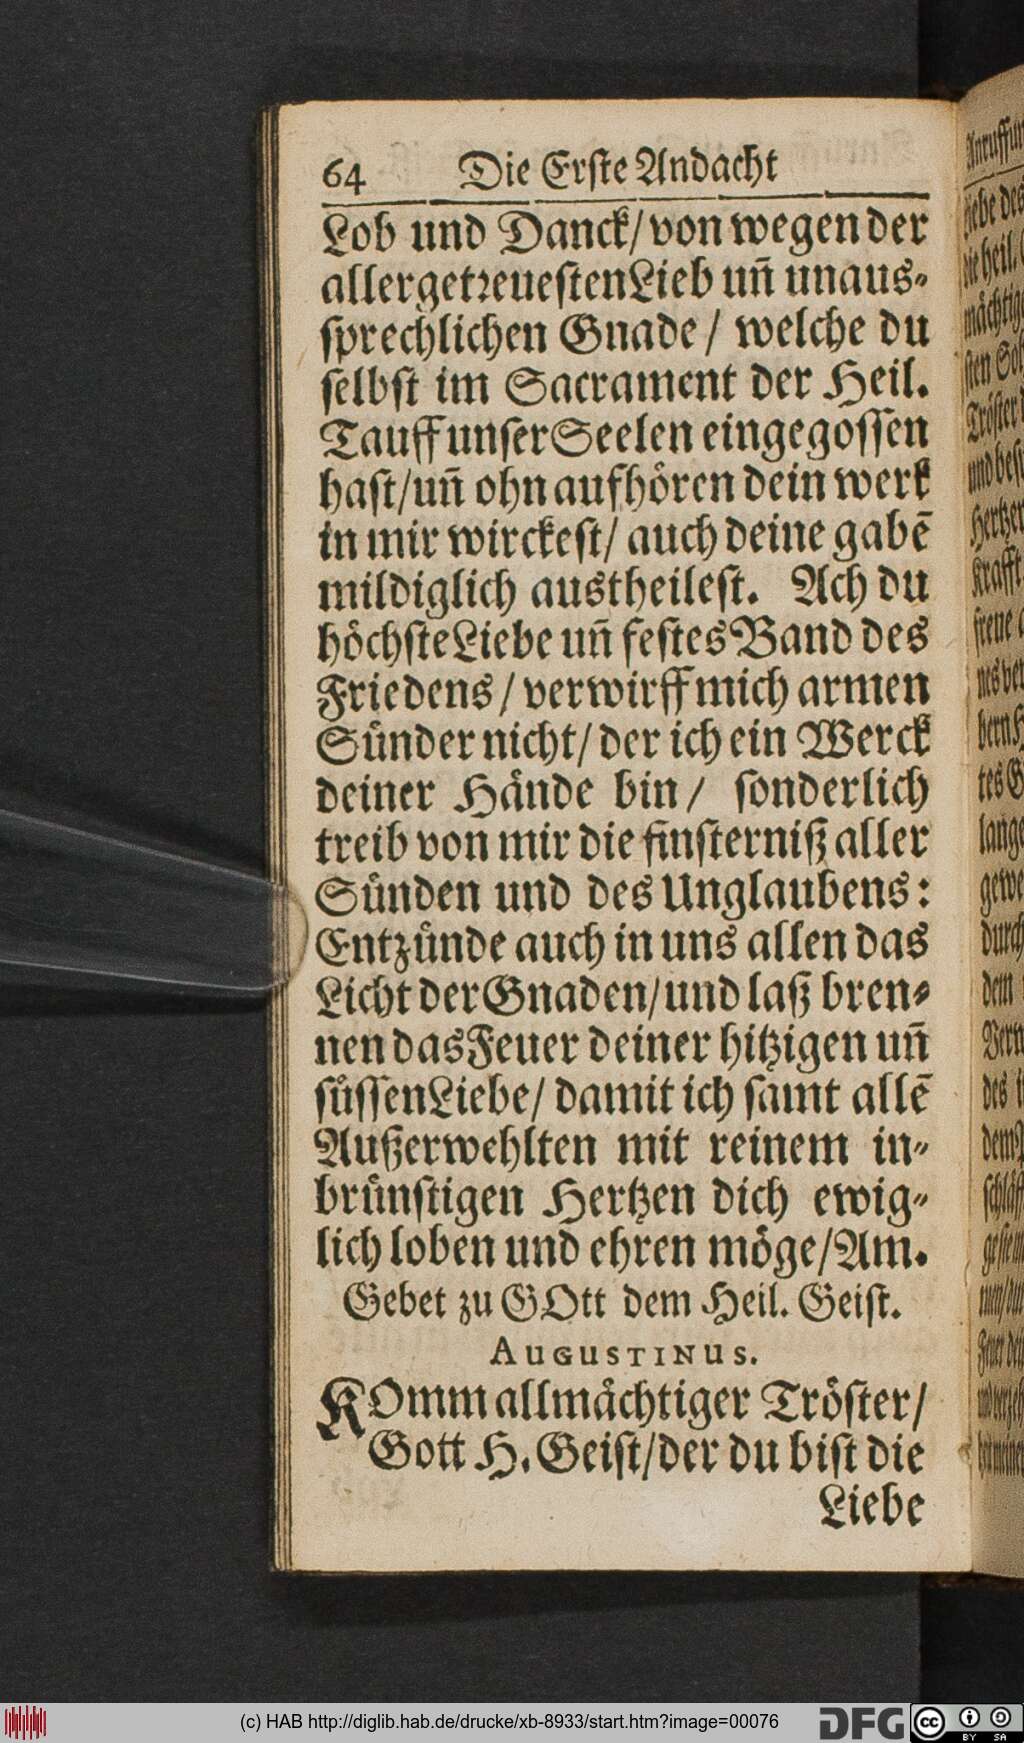 64 Die Erste Andacht
Lob und Danck/ von wegen der
allergetreuesten Lieb uñ unaus-
sprechlichen Gnade / welche du
selbst im Sacrament der Heil.
Tauff unser Seelen eingegossen
hast/ uñ ohn aufhören dein werk
in mir wirckest/ auch deine gabē
mildiglich austheilest. Ach du
höchste Liebe uñ festes Band des
Friedens / verwirff mich armen
Sünder nicht/ der ich ein Werck
deiner Hände bin / sonderlich
treib von mir die finsterniß aller
Sünden und des Unglaubens:
Entzünde auch in uns allen das
Licht der Gnaden/ und laß bren-
nen das Feuer deiner hitzigen uñ
süssen Liebe/ damit ich samt allē
Außerwehlten mit reinem in-
brünstigen Hertzen dich ewig-
lich loben und ehren möge/ Am.
Gebet zu GOtt dem Heil. Geist.
AUGUSTINUS.
KOmm allmächtiger Tröster/
Gott H. Geist/ der du bist die
Liebe
(c) HAB http://diglib.hab.de/drucke/xb-8933/start.htm?image=00076
DFG
cc BY SA